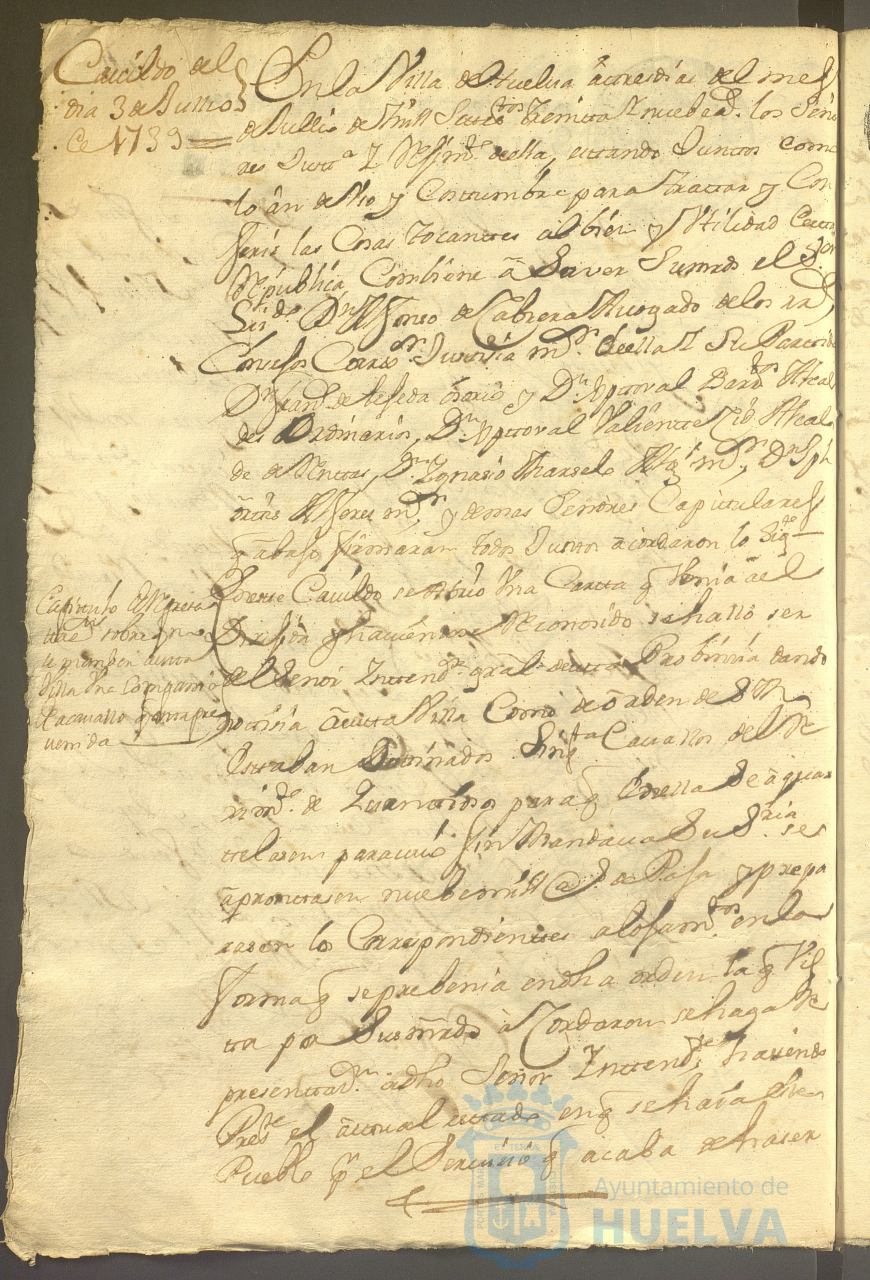 Cavildo del
dia 3 de Jullio
de 1739
En la Villa de Huelva a tres dias del mes
de Jullio de mill Setec.tos treinta y nuebe a.s los Seño
res Just.a y Rejim.to de ella, estando Juntos como
lo an de Uso y Costumbre para tratar y Con
ferir las Cosas tocantes al bien y Utilidad de esta
Republica Combiene à Saver Sus mrds el S.or
Liz.do D.n Alfonso de Cabrera Avogado de los rr.s
Consejos Correx.or Justisia m.r de ella y Su Partido
D.n Fran.co de Sepeda Osorio y D.n Xptoval Bar.tos Alcal
des Ordinarios, D.n Xptoval Valiente Alcal
de de D.n Ygnasio Marselo Alg.l m.r, D.n Jph
ortis Alferes m.r y demas Señores Capitulares
q abajo firmaran todos Juntos acordaron lo Sig.te
Capitulo
sobre q
se esta
Villa Una Compania
de cavallo q esta pre
venida
En este Cavildo se Abrio Una Carta q Venia a el
Dirijida y haviendose Reconosido se hallo ser
del Señor Yntend.te gral de esta Probinsia dando
notisia a esta Villa Como de orden de S. M.
Estaban Destinados Sinq.ta Cavallos del Re
xim.to de para q en ella Se aquar
telasen para cuio fin Mandava Su S.ria se
aprontasen nuebe mill @.s de Paja y prepa
rasen lo Correspondientes alojam.tos en la
forma q se prebenia en dha orden la q Vis
ta por Sus mrds aCordaron se haga Re
presentas.n a dho Señor Yntend.te haziendo
Pres.te el actual estado en q se halla este
Pueblo p.r el Servicio q acaba de haser
Ayuntamiento de
HUELVA